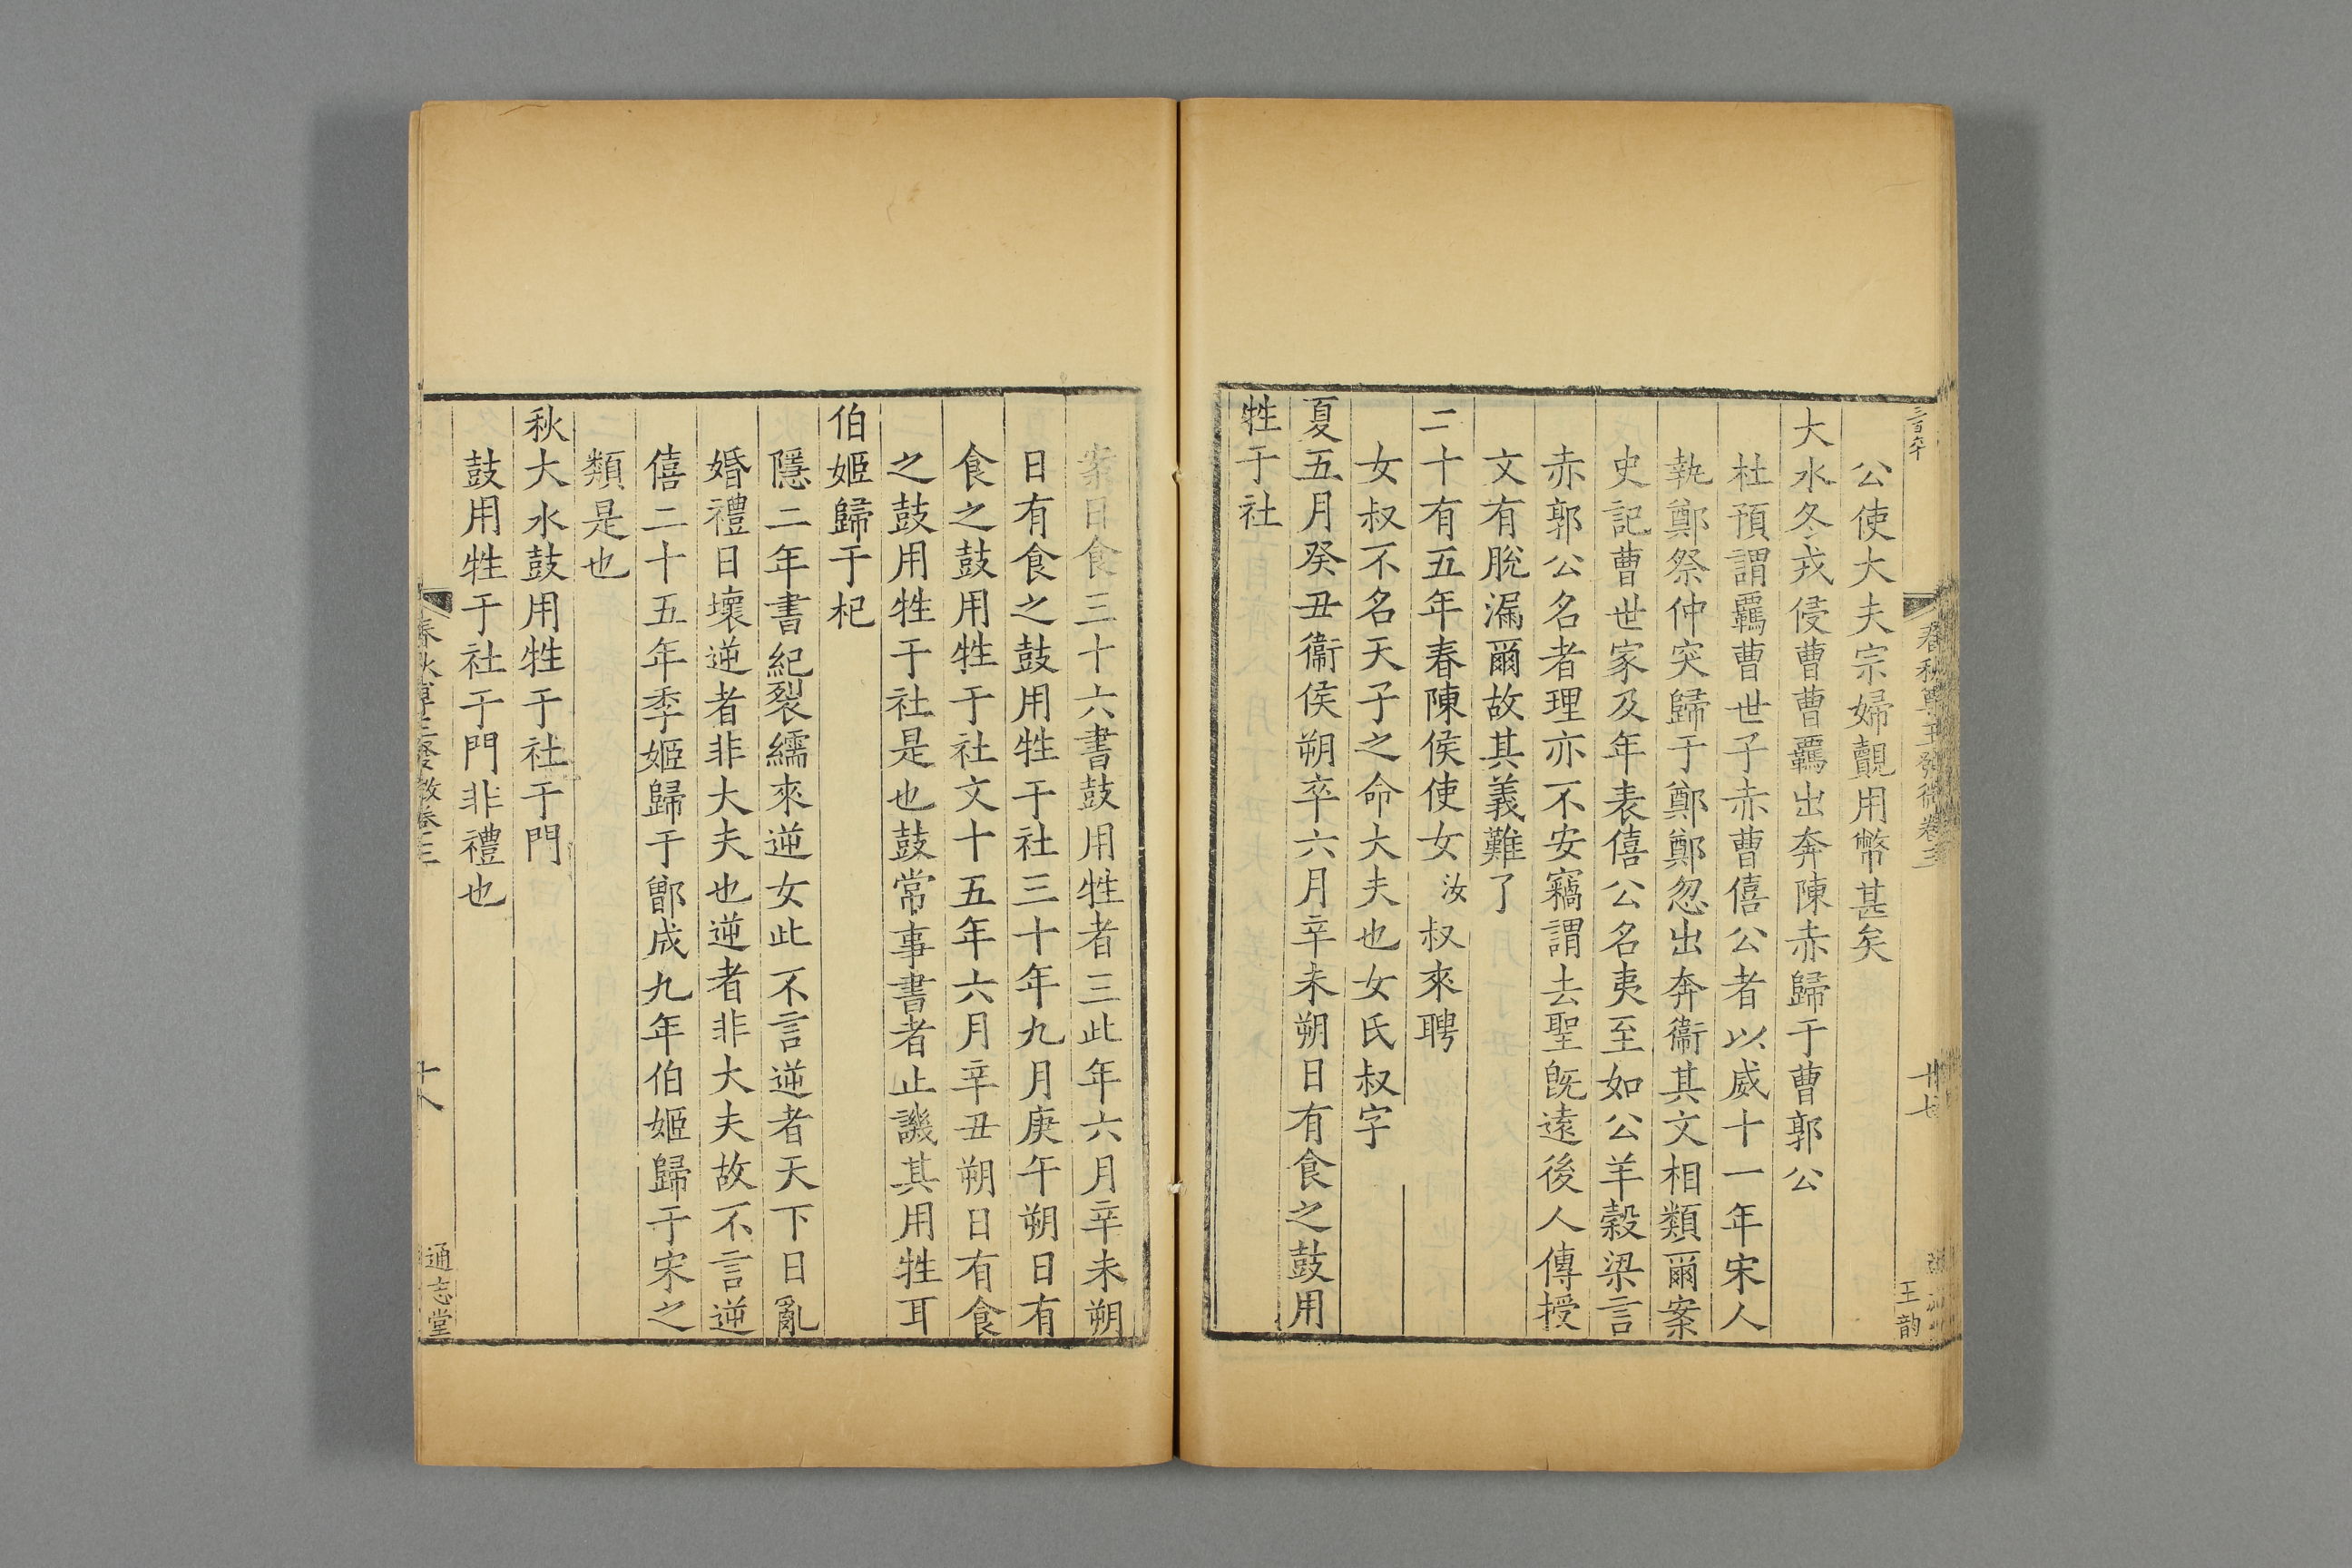 公使大夫宗婦覿用幣甚矣
大水冬戎侵曹曹覊出奔陳赤歸于曹郭公
杜預謂覊曹世子赤曹僖公者以威十一年宋人
執鄭祭仲突歸于鄭鄭忽出奔衞其文相類爾案
史記曹世家及年表僖公名夷至如公羊穀梁言
赤郭公名者理亦不安竊謂去聖旣遠後人傳授
文有脫漏爾故其義難了
二十有五年春陳侯使女汝叔來聘
女叔不名天子之命大夫也女氏叔字
夏五月癸丑衞侯朔卒六月辛未朔日有食之鼓用
牲于社
案日食三十六書鼓用牲者三此年六月辛未朔
日有食之鼓用牲于社三十年九月庚午朔日有
食之鼓用牲于社文十五年六月辛丑朔日有食
之鼓用牲于社是也鼓常事書者止譏其用牲耳
伯姬歸于杞
隱二年書紀裂繻來逆女此不言逆者天下日亂
婚禮日壞逆者非大夫也逆者非大夫故不言逆
僖二十五年季姬歸于鄫成九年伯姬歸于宋之
類是也
秋大水鼓用牲于社于門
鼓用牲于社于門非禮也
春秋尊王發微卷三
十八
通志堂